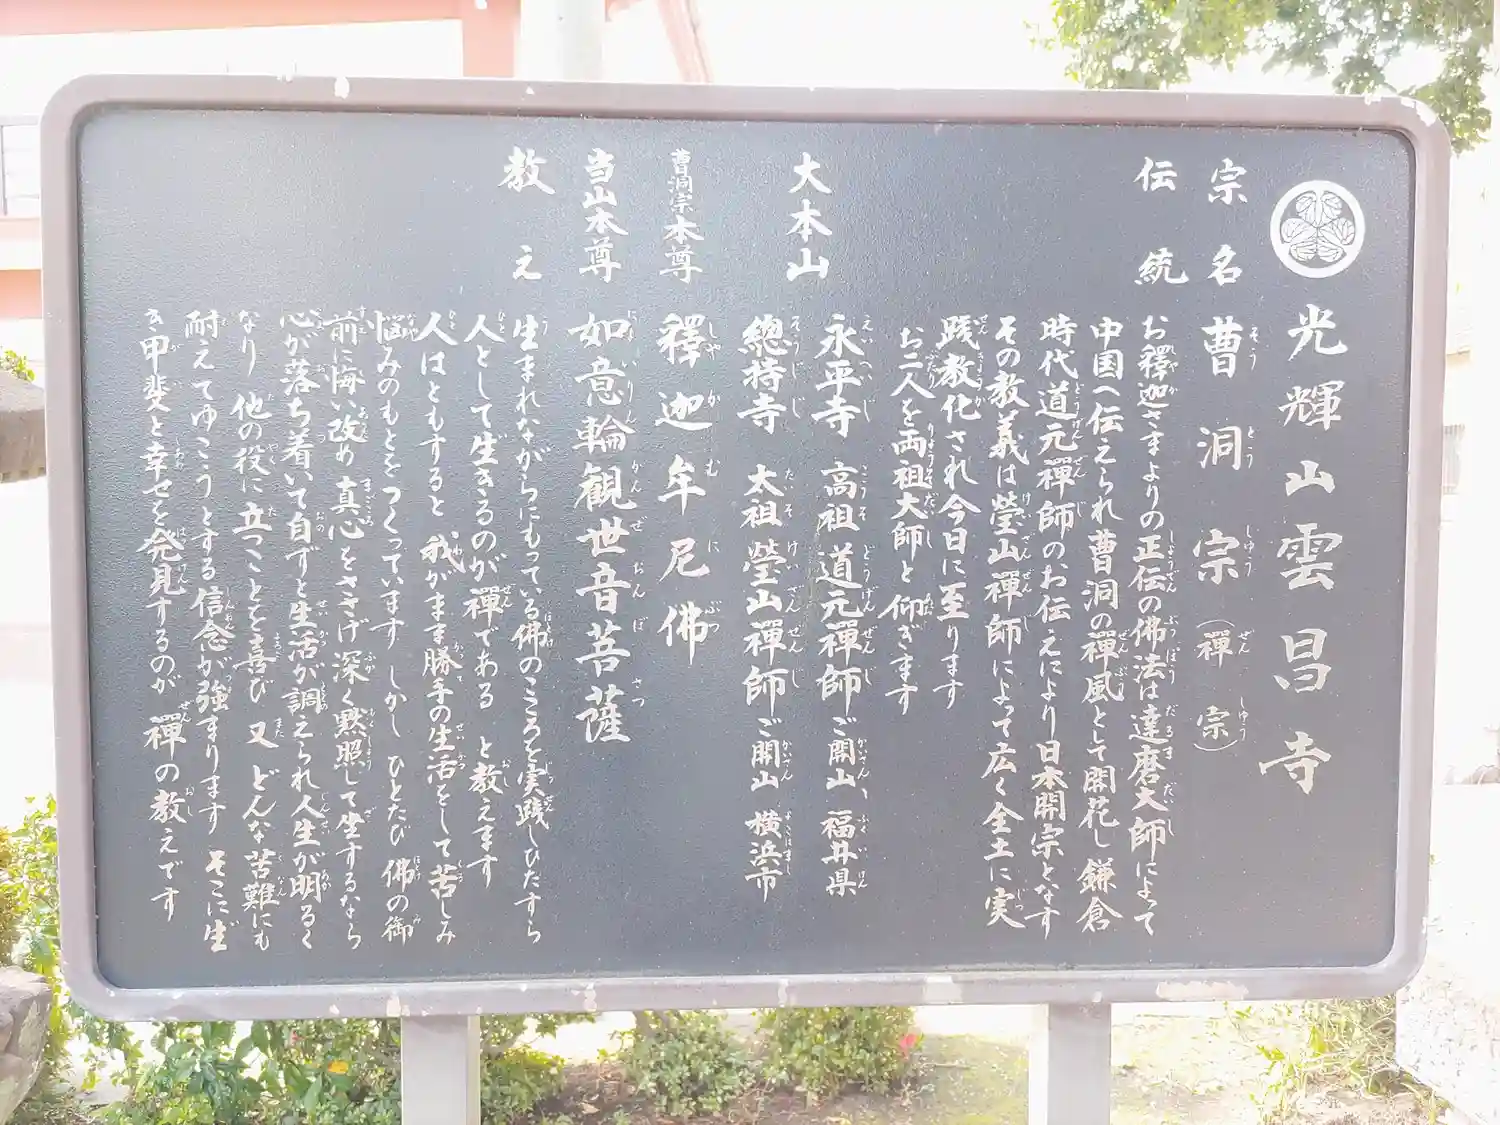 光輝山雲昌寺
宗名 曹洞宗(禪宗)
伝統 お釋迦さまよりの正伝の佛法は達磨大師によって
中国へ伝えられ曹洞の禪風として開花し鎌倉
時代道元禪師のお伝えにより日本開宗となす
その教義は瑩山禪師によって広く全土に実
践教化され今日に至ります
お二人を両祖大師と仰ぎます
大本山 永平寺 高祖 道元禪師ご開山、福井県
總持寺 太祖 瑩山禪師ご開山 横浜市
曹洞宗本尊 釋迦牟尼佛
当山本尊 如意輪観世音菩薩
教え 生まれながらにもっている佛のこころを実践しひたすら
人として生きるのが禪である と教えます
人はともすると 我がまま勝手の生活をして苦しみ
悩みのもとをつくっています しかし ひとたび 佛の御
前に悔い改め 真心をささげ 深く黙照して坐するなら
心が落ち着いて自ずと生活が調えられ人生が明るく
なり 他の役に立つことを喜び 又 どんな苦難にも
耐えてゆこうとする信念が強まります そこに生
き甲斐と幸せを発見するのが 禪の教えです